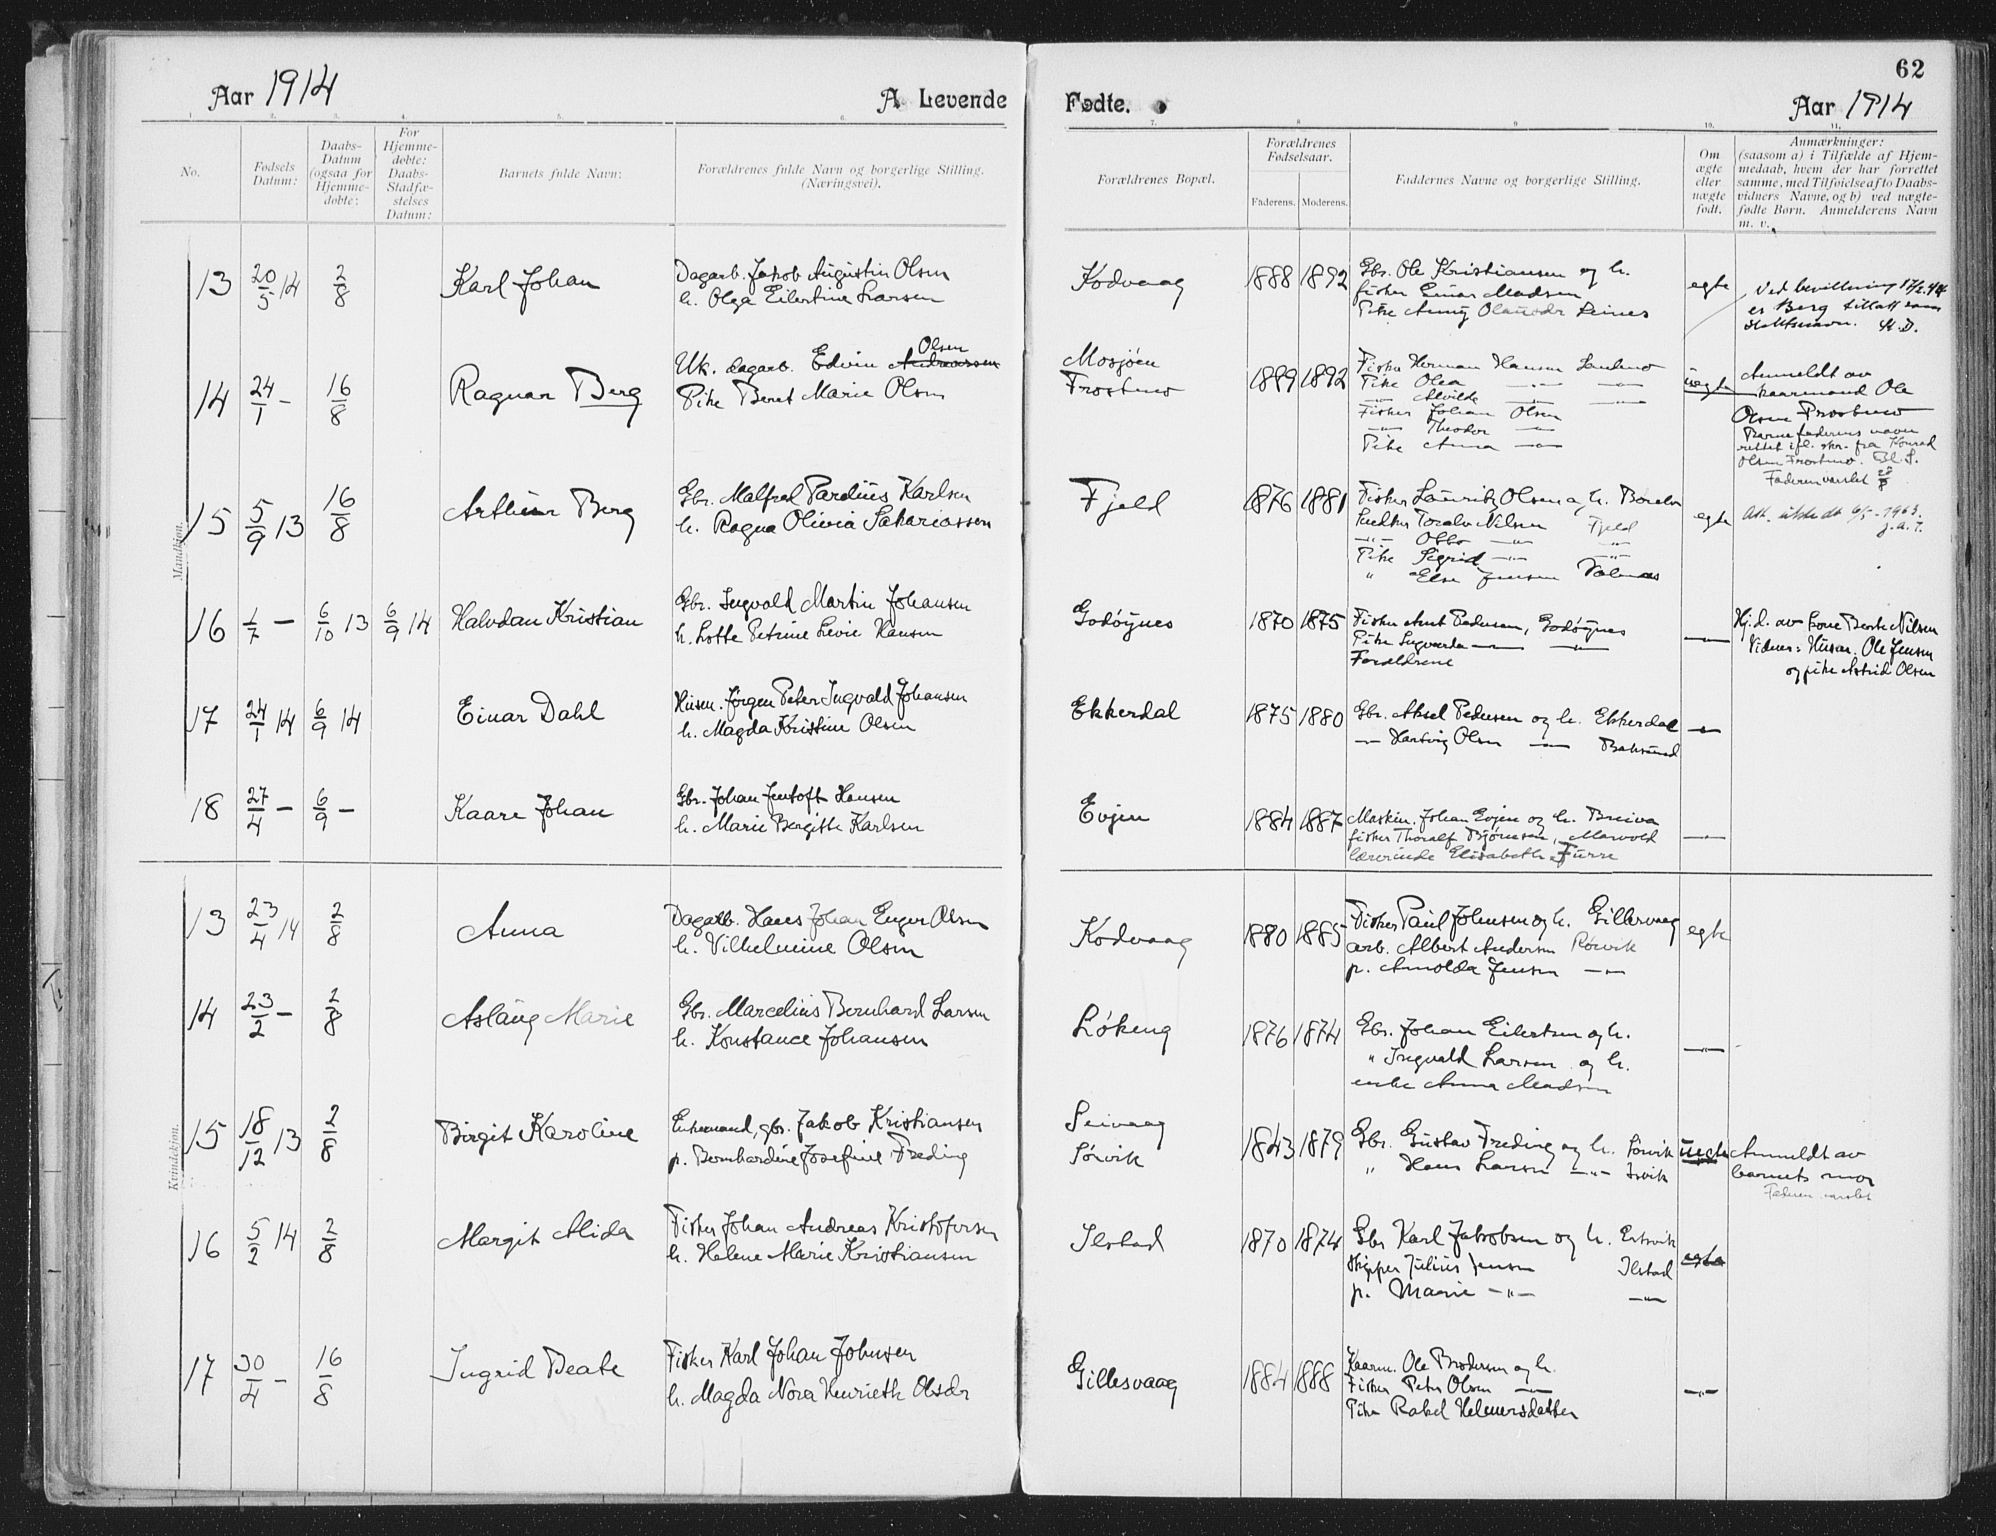 62
Aar 1914
A. Levende
Fødte.
Aar 1914
1. 2. 3. 4. 5. 6. 7. 8. 9. 10. 11.
No.
Fødsels
Datum:
Daabs-
Datum
(ogsaa for
Hjemme-
døbte:
For
Hjemme-
døbte:
Daabs-
Stadfæ-
stelses
Datum:
Barnets fulde Navn:
Forældrenes fulde Navn og borgerlige Stilling.
(Næringsvei).
Forældrenes Bopæl.
Forældrenes
Fødselsaar.
Faderens. Moderens.
Faddernes Navne og borgerlige Stilling.
Om
ægte
eller
uægte
født.
Anmærkninger:
(saasom a) i Tilfælde af Hjem-
medaab, hvem der har forrettet
samme, med Tilføielse af to Daabs-
vidners Navne, og b) ved uægte-
fødte Børn. Anmelderens Navn
m. v.
Mandkjøn.
13 20/5 14 2/8 Karl Johan
Dagarb. Jakob Augustin Olsen
h. Olga Eilertine Larsen
Kodvaag 1888 1892
Gbr. Ole Kristiansen og h.
fisker Einar Madsen
Pike Anny Olausdr Leines
egte
Ved bevillning 17/2.44
er Berg tillatt som
slektsnavn.
14 24/1 – 16/8 Ragnar Berg
Olsen
Uk. dagarb. Edvin Andreassen
Pike Beret Marie Olsen
Mosjøen
Frostmo
1889 1892
Fisker Herman Hansen
Pike Olea –"– –"–
–"– Alvilde –"– –"–
Fisker Johan Olsen
–"– Theodor –"–
Pike Anna –"–
uegte
Anmeldt av
kaarmand Ole
Olsen Frostmo
Barnefaderens navn
rettet ifl. skr. fra Konrad
Olsen Frostmo.
Faderen varslet 28/8
15 5/9 13 16/8 Arthur Berg
Gbr. Malfred Pareliús Karlsen
h. Ragna Olivia Sakariassen
Fjeld 1876 1881
Fisker Lauritz Olsen og h.
Toralv Nilsen Fjeld
–"– Otto –"– –"–
Pike Sigrid –"– –"–
" Else Jensen
egte
Att. utstedt 6/5-1963.
16 1/7 – 6/10 13 6/9 14 Halvdan Kristian
Gbr. Ingvald Martin Johansen
h. Lotte Petrine Levie Hansen
Godøynes 1870 1875
Fisker Arnt Pedersen, Godøynes
Pike Ingvarda –"– –"–
Forældrene
–"–
Hj.d. av Lone Berte Nilsen
Vidner: Husm. Ole Jensen
og pike Astrid Olsen
17 24/1 14 6/9 14 Einar Dahl
Husm. Jørgen Peter Ingvald Johansen
h. Magda Kristine Olsen
Ekkerdal 1875 1880
Gbr. Aksel Pedersen og h. Ekkerdal
–"– Hartvig Olsen –"–
–"–
18 27/4 – 6/9 – Kaare Johan
Gbr. Johan Jentoft Hansen
h. Marie Bergitte Karlsen
Evjen 1884 1887
Maskin. Johan Evjen og h. Breiva
fisker Thoralf Bjørnsen,
lærerinde Elisabeth Furre
–"–
Kvindekjøn.
13 23/4 14 2/8 Anna
Dagarb. Hans Johan Enger Olsen
h. Vilhelmine Olsen
Kodvaag 1880 1885
Fisker Paul Johnsen og h. Gillesvaag
arb. Albert Andersen Rørvik
p. Arnolda Jensen –"–
egte
14 23/2 – 2/8 Aslaug Marie
Gbr. Marcelius Bernhard Larsen
h. Konstance Johansen
Løkeng 1876 1874
Gbr. Johan Eilertsen og h.
" Ingvald Larsen og h.
enke Anna Madsen
–"–
15 18/12 13 2/8 Birgit Karoline
Enkemand, gbr. Jakob Kristiansen
p. Bernhardine Josefine Freding
Seivaag
Sørvik
1843 1879
Gbr. Gustav Freding og h. Sørvik
" Hans Larsen –"–
uegte
Anmeldt av
barnets mor
Faderen varslet
16 5/2 14 2/8 Margit Alida
Fisker Johan Andreas Kristofersen
h. Helene Marie Kristiansen
Ilstad 1870 1874
Gbr Karl Jakobsen og h.
Skipper Julius Jensen Ilstad
p. Marie –"– –"–
egte
17 30/4 – 16/8 Ingrid Beate
Fisker Karl Johan Johnsen
h. Magda Nora Henriette Olsdr
Gillesvaag 1884 1888
Kaarm. Ole Brodersen og h.
Fisker Peter Olsen –"–
Pike Rakel Helmersdatter
–"–